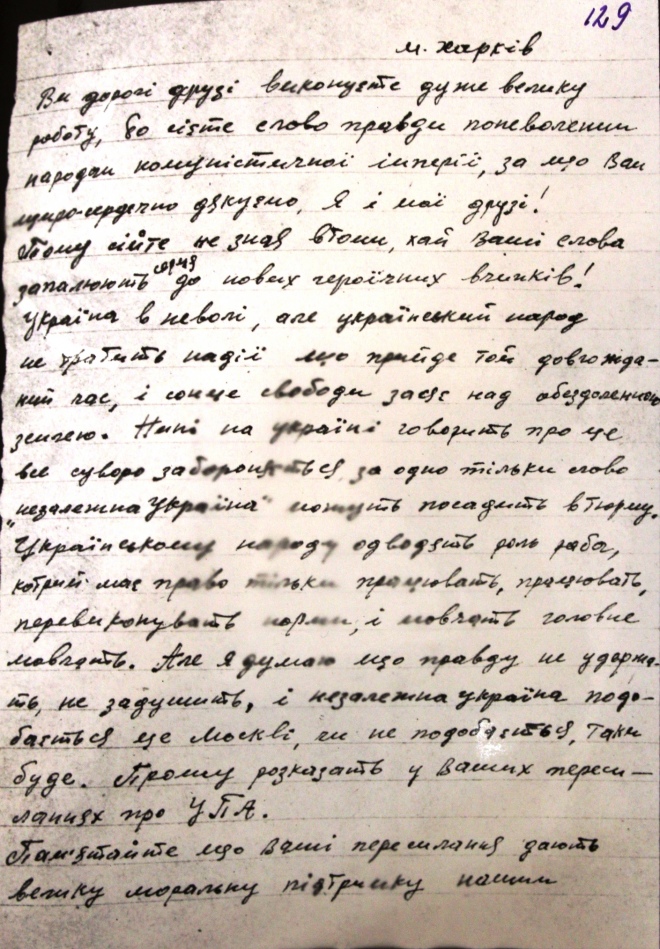 129
м. Харків
Ви дорогі друзі виконуєте дуже велику
роботу, бо сієте слово правди поневоленим
народам комуністичної імперії, за що Вам
щиро-сердечно дякуємо, Я і мої друзі!
Тому сійте не зная втоми, хай Ваші слова
запалюють серця до нових героїчних вчинків!
Україна в неволі, але український народ
не тратить надії що прийде той довгожда-
ний час, і сонце свободи засяє над обездоленною
землею. Нині на україні говорить про це
все суворо забороняється, за одно тільки слово
"незалежна Україна" можуть посадить в тюрму.
Українському народу одводять роль раба,
котрий має право тільки працювать, працювать,
перевиконувать норми, і мовчать головне
мовчать. Але я думаю що правду не удержа-
ть, не задушить, і незалежна україна подо-
бається це москві, чи не подобається, таки
буде. Прошу розказать у Ваших переси-
ланнях про УПА.
Пам'ятайте що Ваші пересилання дають
велику моральну підтримку нашим